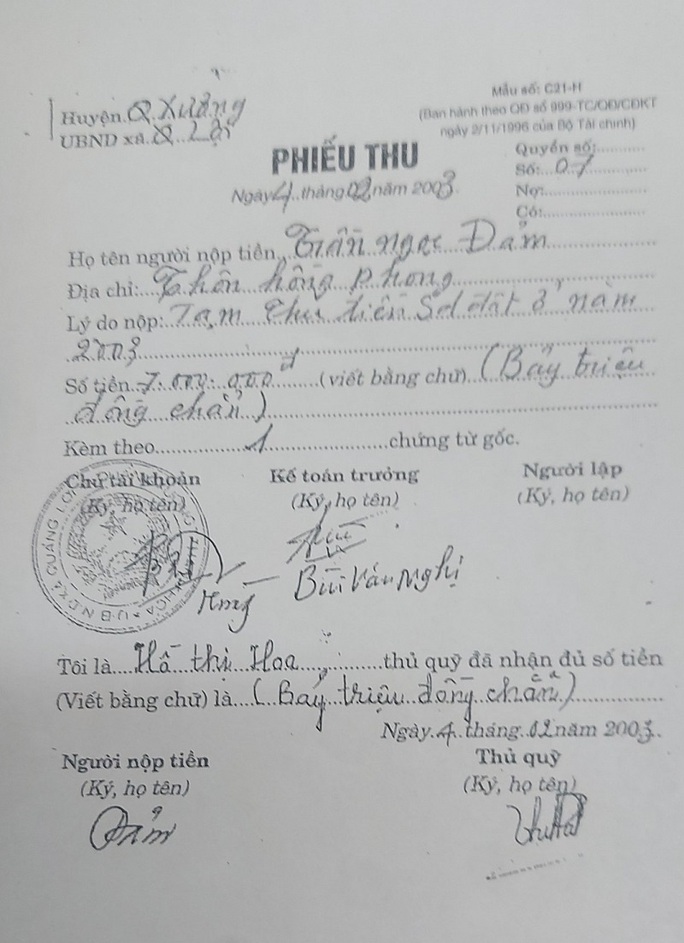 Huyện Q. Xương
UBND xã Q. Lợi
Mẫu số: C21-H
(Ban hành theo QĐ số 999-TC/QĐ/CĐKT
ngày 2/11/1996 của Bộ Tài chính)
PHIẾU THU
Ngày 4 tháng 02 năm 2003
Quyển số:
Số: 07
Nợ:
Có:
Họ tên người nộp tiền Trần ngọc Đảm
Địa chỉ: Thôn hồng phong
Lý do nộp: Tạm thu tiền Sd đất ở năm
2003
Số tiền 7.000.000đ (viết bằng chữ) (Bảy triệu
đồng chẵn)
Kèm theo 1 chứng từ gốc.
Chủ tài khoản Kế toán trưởng Người lập
(Ký, họ tên) (Ký, họ tên) (Ký, họ tên)
U.B.N.D XÃ QUẢNG
Bùi Văn Nghị
Tôi là Hồ thị Hoa thủ quỹ đã nhận đủ số tiền
(Viết bằng chữ) là (Bảy triệu đồng chẵn)
Ngày 4 tháng 02 năm 2003
Người nộp tiền Thủ quỹ
(Ký, họ tên) (Ký, họ tên)
Đảm